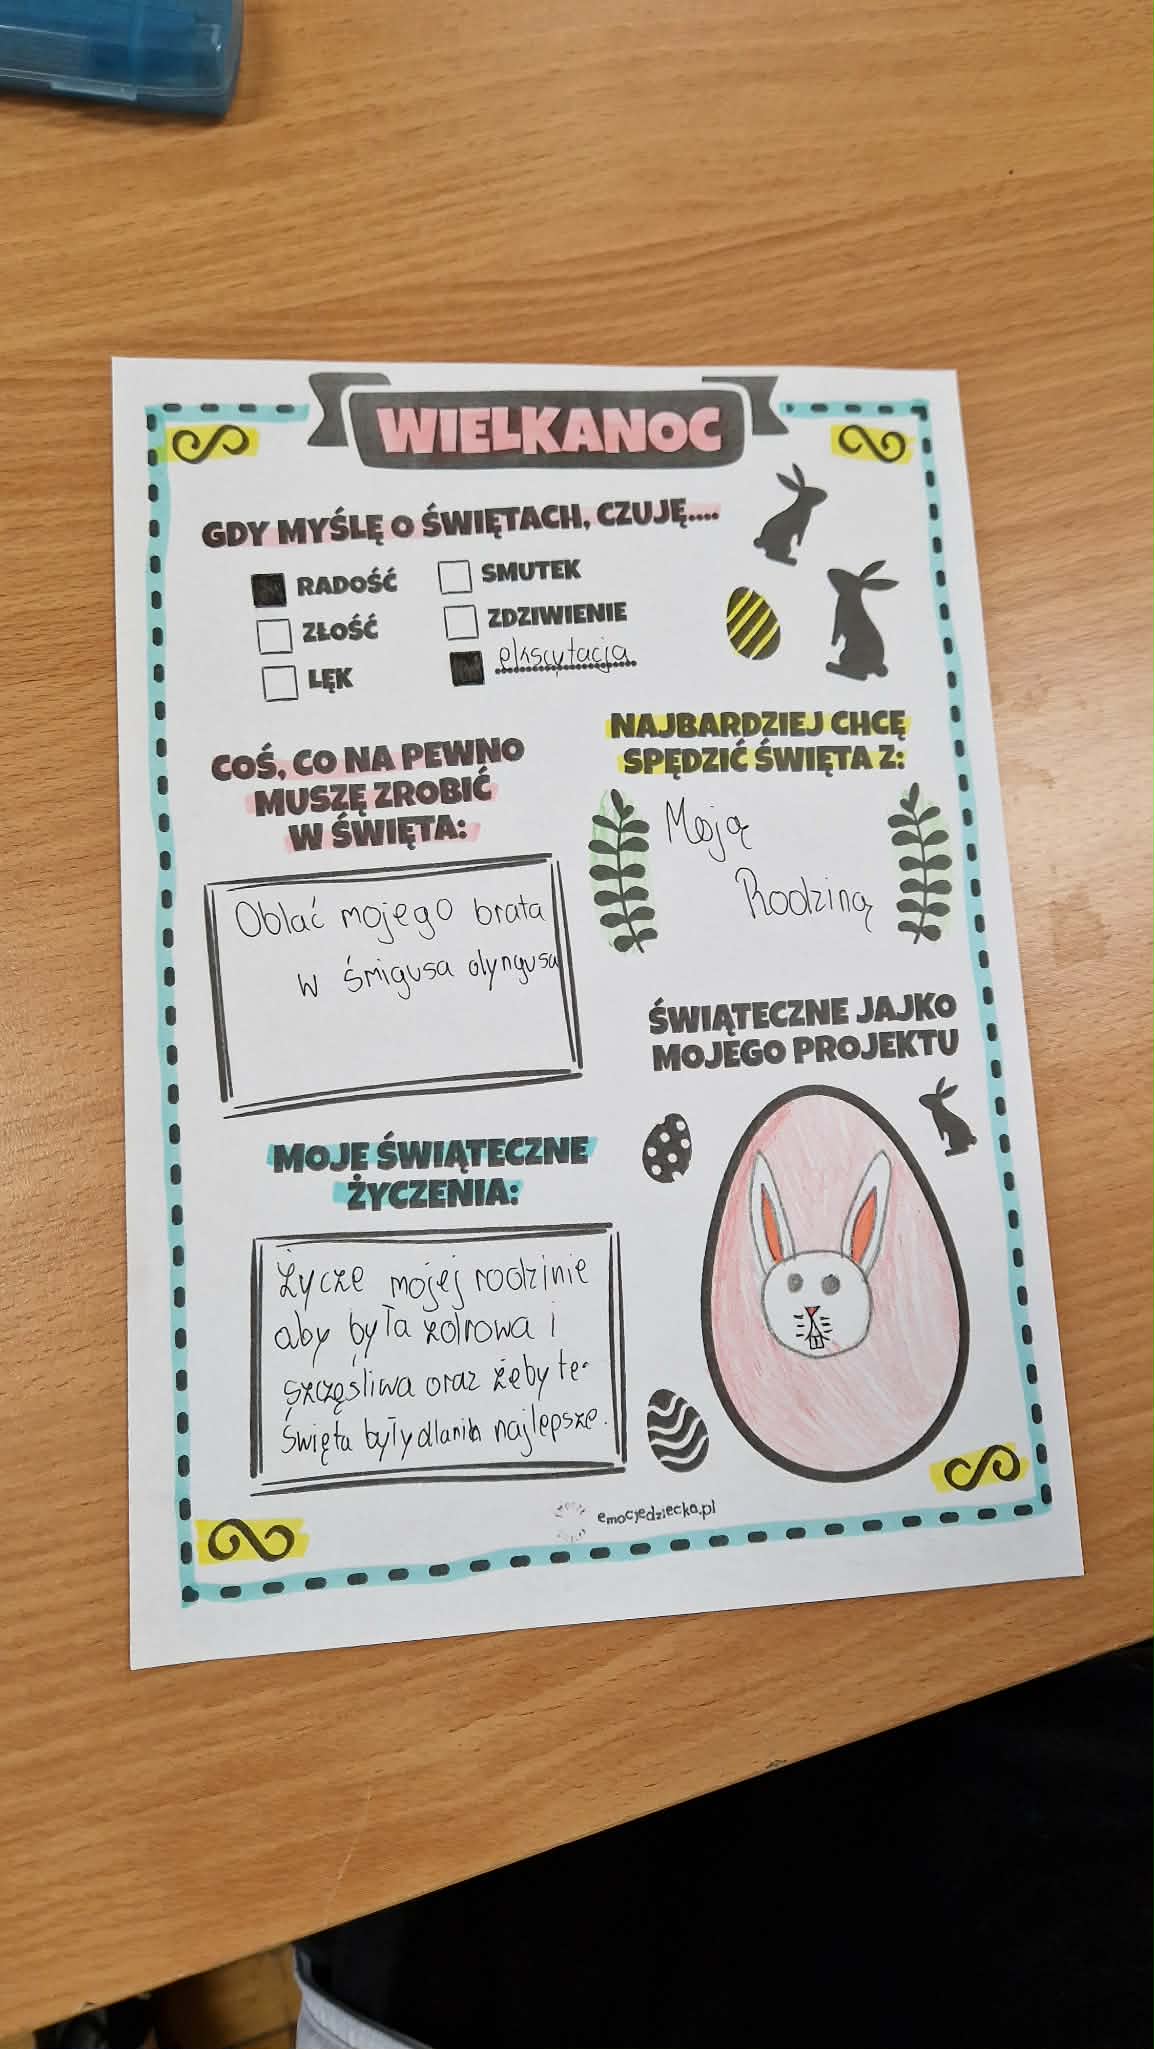 WIELKANOC
GDY MYŚLĘ O ŚWIĘTACH, CZUJĘ....
RADOŚĆ
SMUTEK
ZŁOŚĆ
ZDZIWIENIE
LĘK
ekscytacja
COŚ, CO NA PEWNO
MUSZĘ ZROBIĆ
W ŚWIĘTA:
Oblać mojego brata
w śmigusa dyngusa
NAJBARDZIEJ CHCĘ
SPĘDZIĆ ŚWIĘTA Z:
Moją
Rodziną
MOJE ŚWIĄTECZNE
ŻYCZENIA:
Życzę mojej rodzinie
aby była zdrowa i
szczęśliwa oraz żeby te
Święta były dla nich najlepsze.
ŚWIĄTECZNE JAJKO
MOJEGO PROJEKTU
emocjedziecka.pl